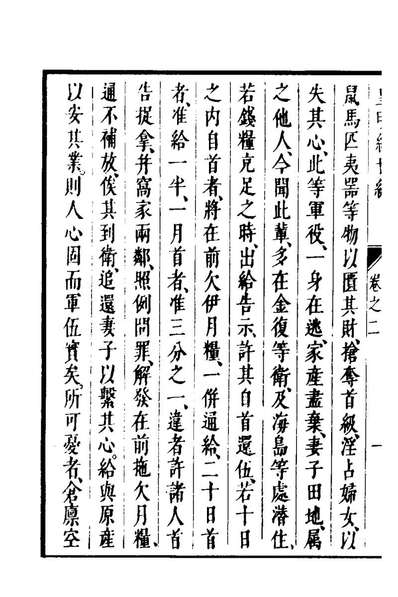 皇明經世編
卷之二
一
鼠馬匹夷器等物以匱其財、搶奪首級、淫占婦女、以
失其心、此等軍役、一身在逃、家産盡棄、妻子田地、属
之他人、今聞此輩、多在金復等衛、及海島等處潜住、
若錢糧充足之時、出給告示、許其自首還伍、若十日
之内自首者、將在前欠伊月糧、一併通給、二十日首
者、准給一半、一月首者、准三分之一、違者許諸人首
告捉拿、并窩家兩鄰、照例問罪、解發在前拖欠月糧、
通不補放、俟其到衛、追還妻子以繫其心、給與原産
以安其業、則人心固而軍伍實矣、所可憂者、倉廩空